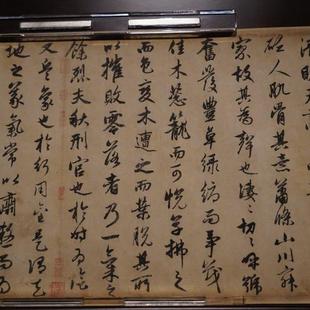 清明天
砭人肌骨其意蕭條山川寂
寥故其為聲也淒々切々呼號
奮發豐草綠縟而爭茂
佳木蔥籠而可悅草拂之
而色變木遭之而葉脫其所
以摧敗零落者乃一氣之
餘烈夫秋刑官也於時為陰
又兵象也於行用金是謂天
地之義氣常以肅殺而為